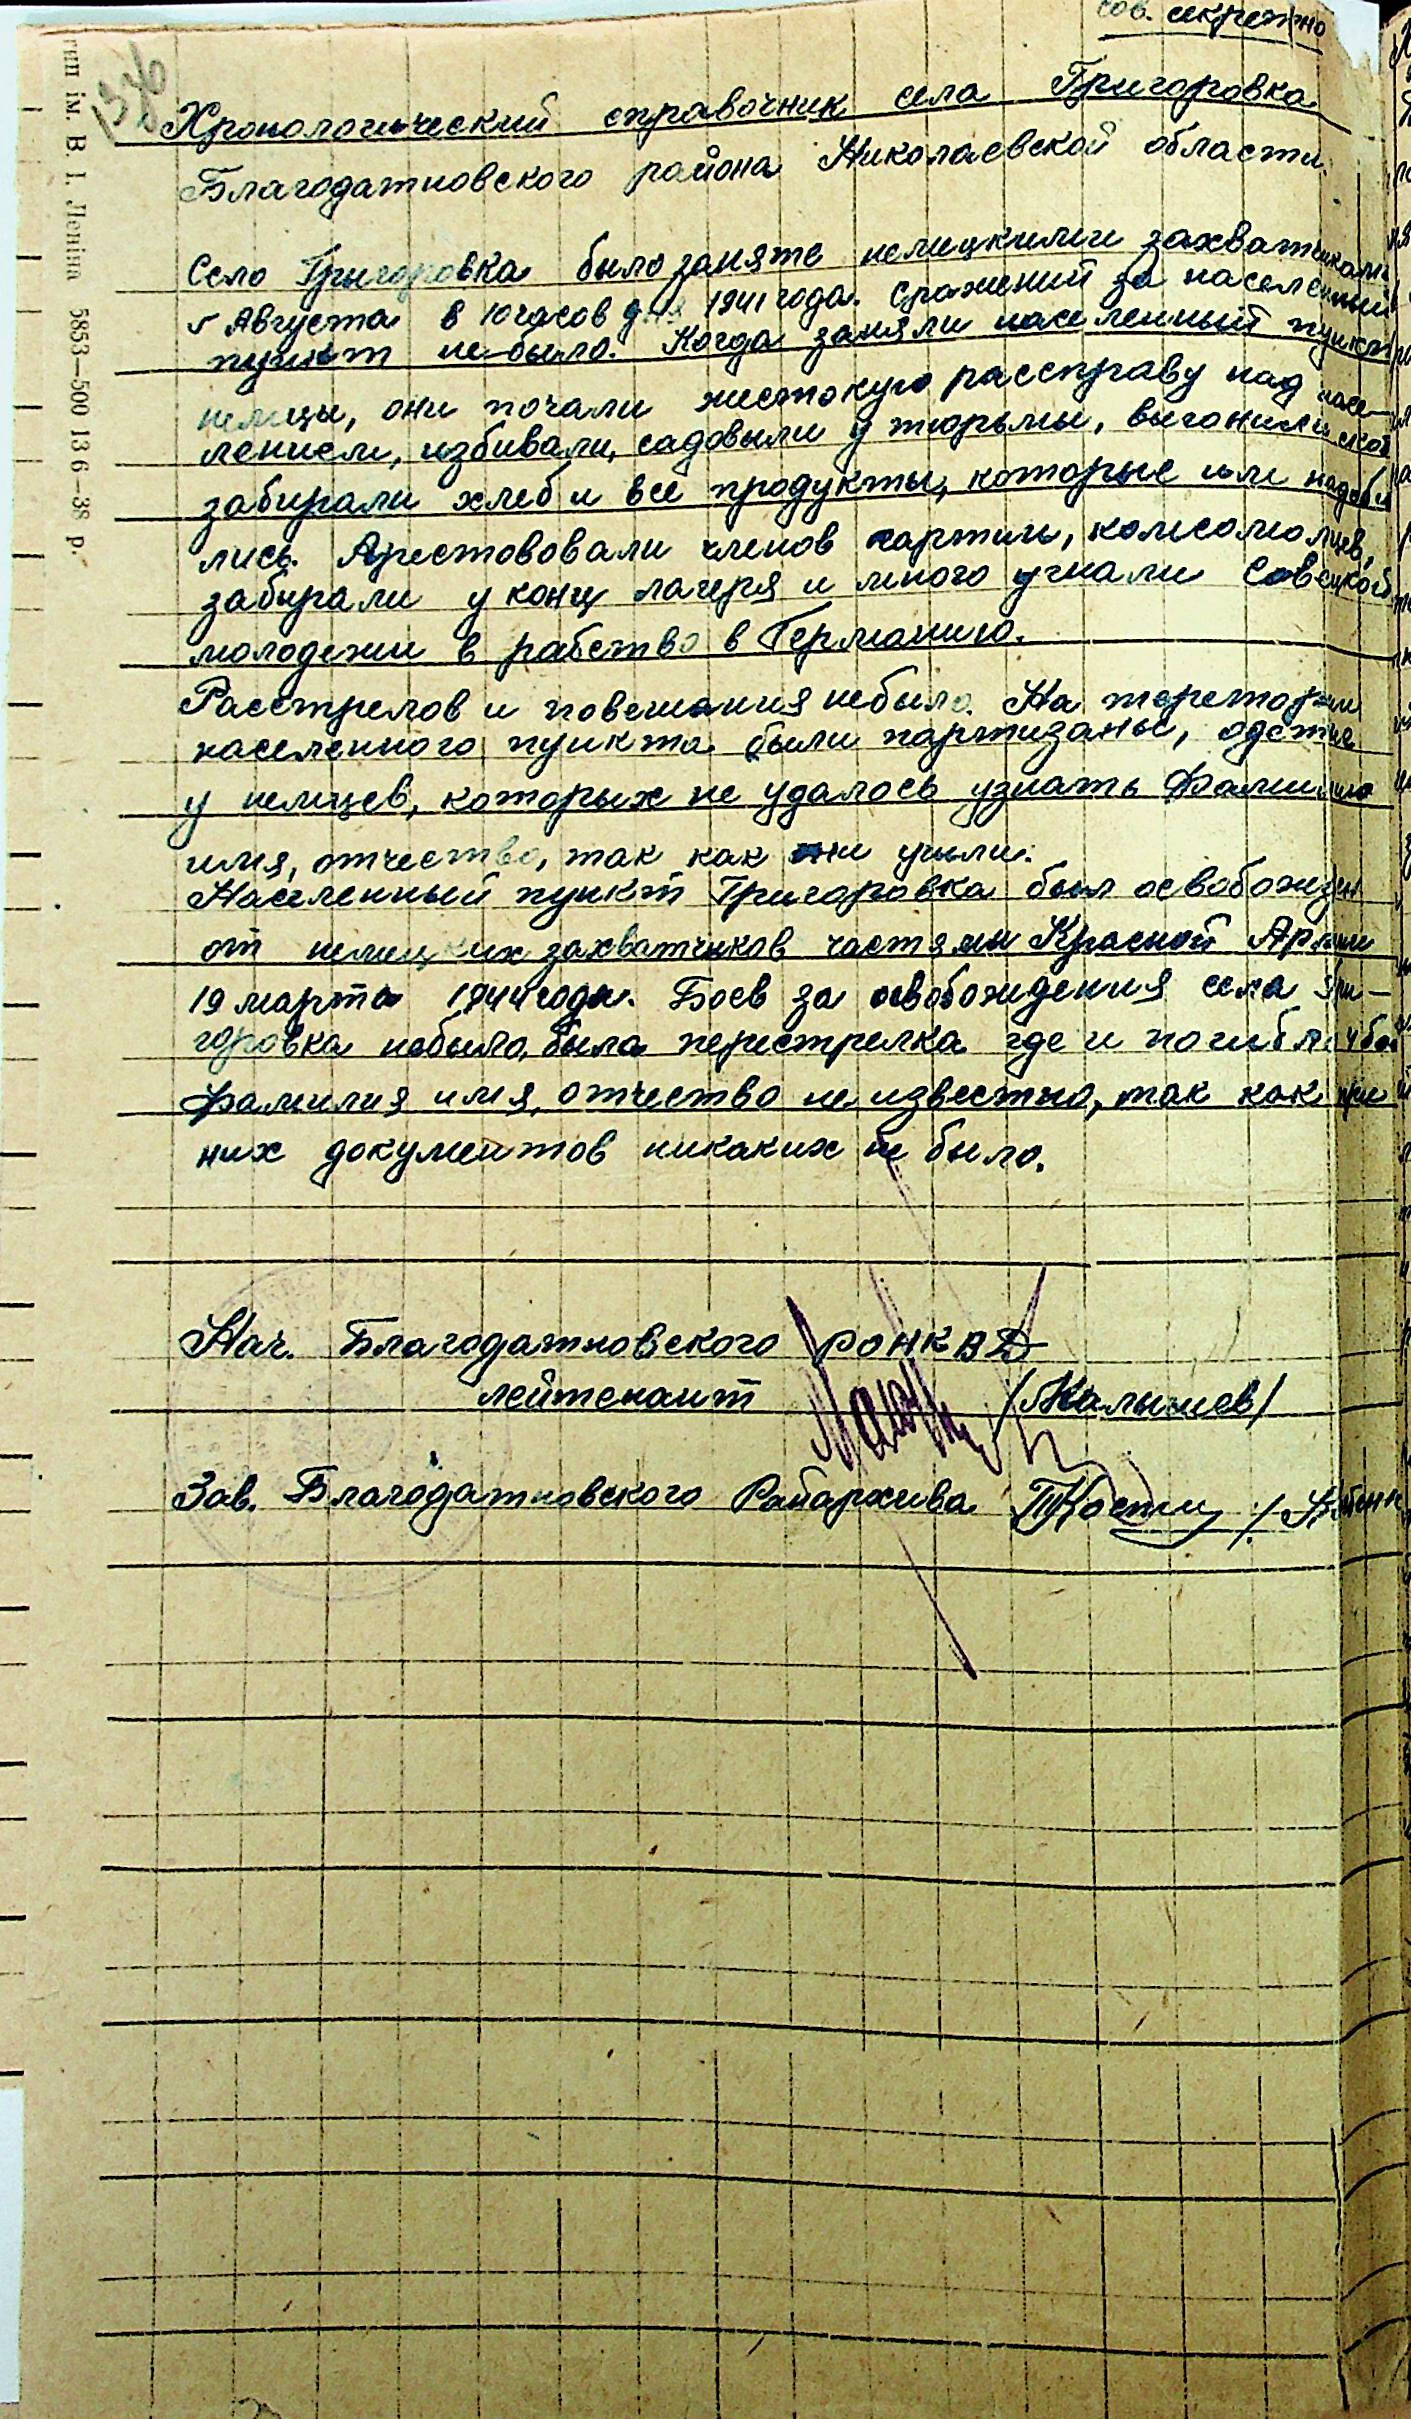 сов. секретно
136
Хронологический справочник села Григоровка
Благодатновского района Николаевской области.
Село Григоровка было заняте немицкими захватчиками
5 Августа в 10 часов дня 1941 года. Сражений за населенный
пункт не было. Когда заняли населенный пункт
немцы, они почали жестокую рассправу над насе-
лением, избивали, садовыли у тюрьмы, выгонили скот
забирали хлеб и все продукты, которые или надоби
лись. Арестововали членов партии, комсомолцев,
забирали у конц лагеря и много угнали Совецкой
молодежи в рабство в Германию.
Расстрелов и повешания небыло. На теретории
населенного пункта были партизаны, одетые
у немцев, которых не удалось узнать Фамилию
имя, отчество, так как они ушли.
Населенный пункт Григоровка был освобожден
от немецких захватчиков частями Красной Армии
19 марта 1944 года. Боев за освобождения села Гри-
горовка небыло, была перестрелка где и погибли
фамилия имя, отчество не известно, так как при
них документов никаких не было.
Нач. Благодатновского РОНКВД
лейтенант /Малышев/
Зав. Благодатновского Райархива
тип ім. В. І. Леніна 5853—500 13 6—38 р.